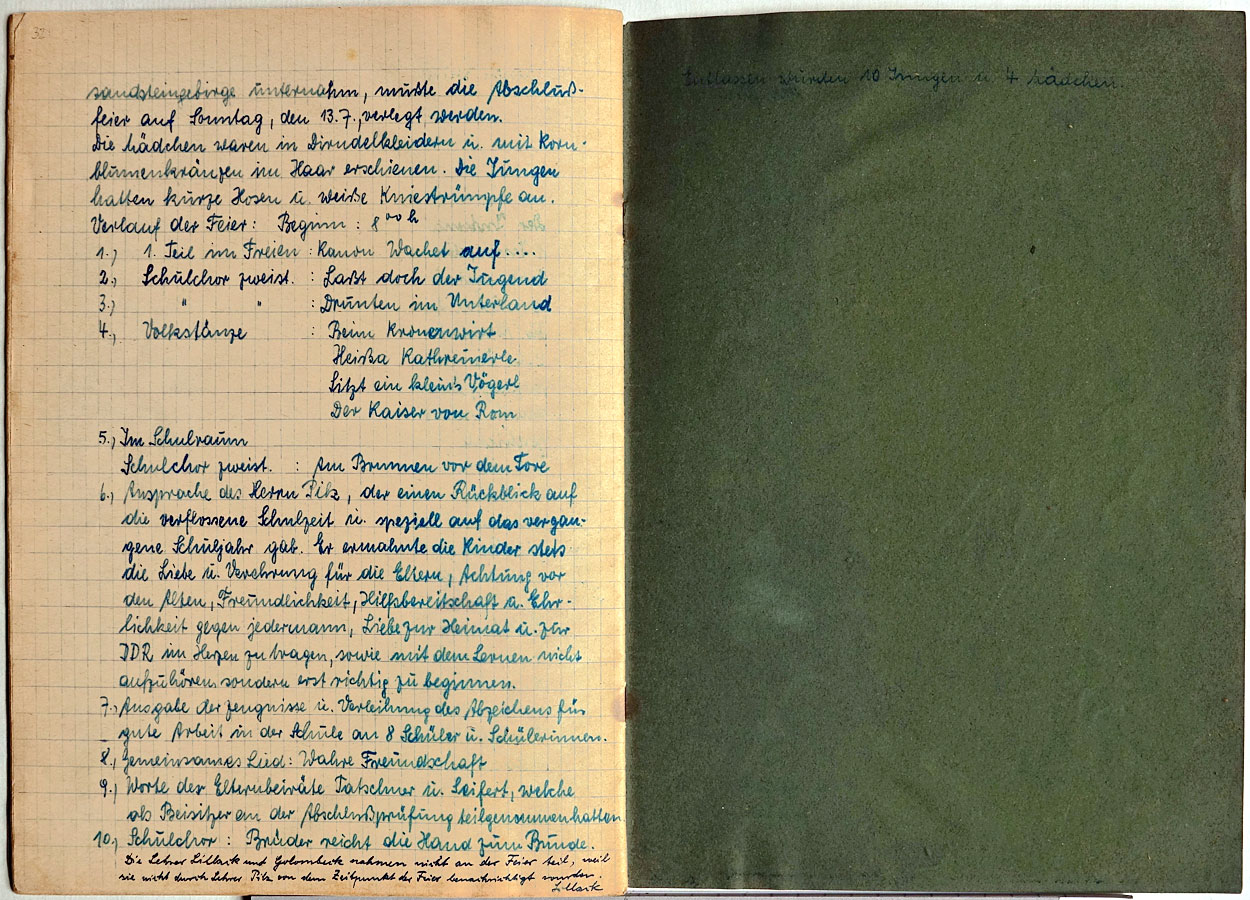 32
sandsteingebirge unternahm, mußte die Abschluß-
feier auf Sonntag, den 13.7., verlegt werden.
Die Mädchen waren in Dirndelkleidern u. mit Korn-
blumenkränzen im Haar erschienen. Die Jungen
hatten kurze Hosen u. weiße Kniestrümpfe an.
Verlauf der Feier: Beginn: 8⁰⁰ h
1.) 1. Teil im Freien : Kanon Wachet auf....
2.) Schulchor zweist. : Laßt doch der Jugend
3.) " " : Drunten im Unterland
4.) Volkstänze : Beim Kronenwirt
Heißa Kathreinerle
Sitzt ein klein's Vögerl
Der Kaiser von Rom
5.) Im Schulraum
Schulchor zweist. : Am Brunnen vor dem Tore
6.) Ansprache des Herrn Pilz, der einen Rückblick auf
die verflossene Schulzeit u. speziell auf das vergan-
gene Schuljahr gab. Er ermahnte die Kinder stets
die Liebe u. Verehrung für die Eltern, Achtung vor
den Alten, Freundlichkeit, Hilfsbereitschaft u. Ehr-
lichkeit gegen jedermann, Liebe zur Heimat u. zur
DDR im Herzen zu tragen, sowie mit dem Lernen nicht
aufzuhören, sondern erst richtig zu beginnen.
7.) Ausgabe der Zeugnisse u. Verleihung des Abzeichens für
gute Arbeit in der Schule an 8 Schüler u. Schülerinnen.
8.) Gemeinsames Lied: Wahre Freundschaft
9.) Worte der Elternbeiräte Tatschner u. Seifert, welche
als Beisitzer an der Abschlußprüfung teilgenommen hatten.
10.) Schulchor : Brüder reicht die Hand zum Bunde.
Die Lehrer Lillack und Golombeck nahmen nicht an der Feier teil, weil
sie nicht durch Lehrer Pilz von dem Zeitpunkt der Feier benachrichtigt wurden.
Lillack
Entlassen wurden 10 Jungen u. 4 Mädchen.